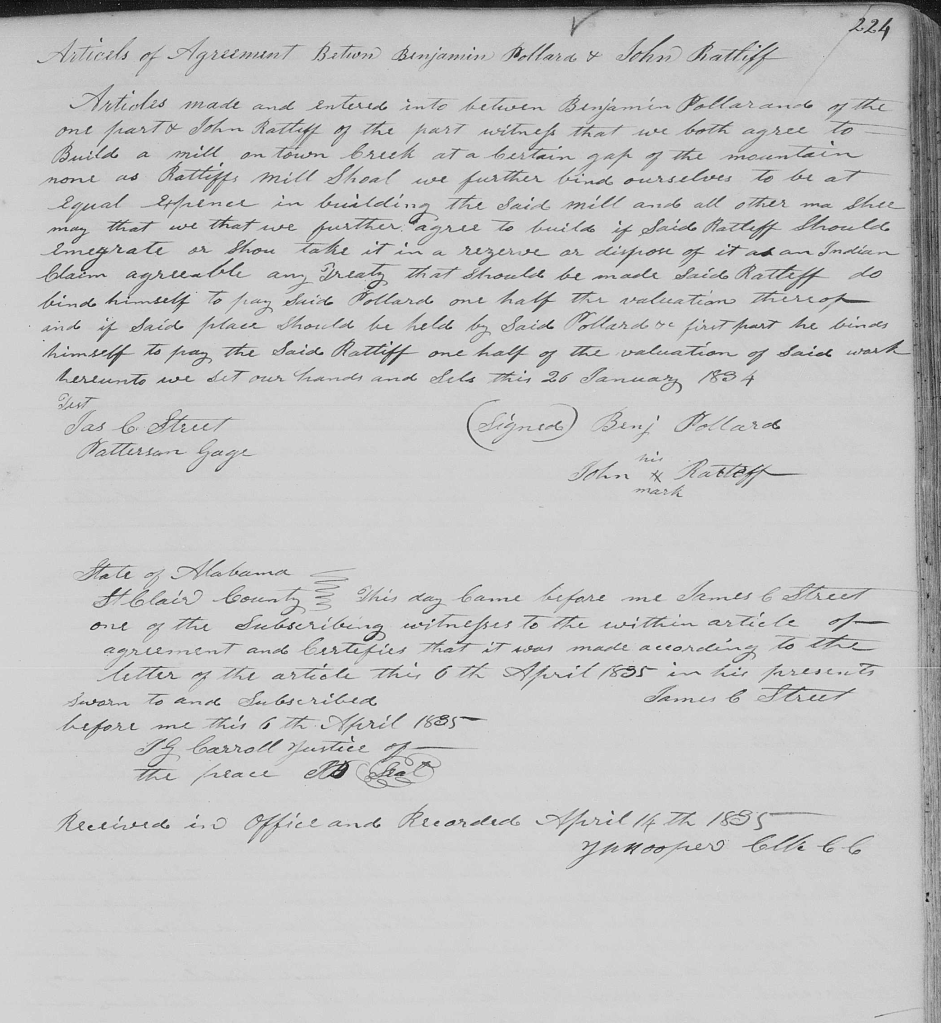 224
Articels of Agreement Betwn Benjamin Pollard & John Ratliff
Articles made and entered into between Benjamin Pollar and of the
one part & John Ratliff of the part witness that we both agree to
Build a mill on town Creek at a Certain gap of the mountain
none as Ratliffs Mill Shoal we further bind ourselves to be at
Equal Expence in building the Said mill and all other ma Shee
may that we that we further agree to build if Said Ratliff Should
emegrate or Shou take it in a rezerve or dispose of it as an Indian
Claim agreeable any Treaty that Should be made Said Ratliff do
bind himself to pay Said Pollard one half the valuation thereof
and if Said place Should be held by Said Pollard & first part he binds
himself to pay the Said Ratliff one half of the valuation of Said work
hereunto we Set our hands and Sels this 26 January 1834
Test
Jas C Street
(Signed) Benj Pollard
Patterson Gage
his
John X Ratliff
mark
State of Alabama
St Clair County This day Came before me James C Street
one of the Subscribing witnesses to the within article of
agreement and Certefies that it was made according to the
letter of the article this 6th April 1835 in his presents
Sworn to and Subscribed James C Street
before me this 6th April 1835
Carroll Justice of
the peace (Seal)
Received in Office and Recorded April 14th 1835
Hooper Clk C C